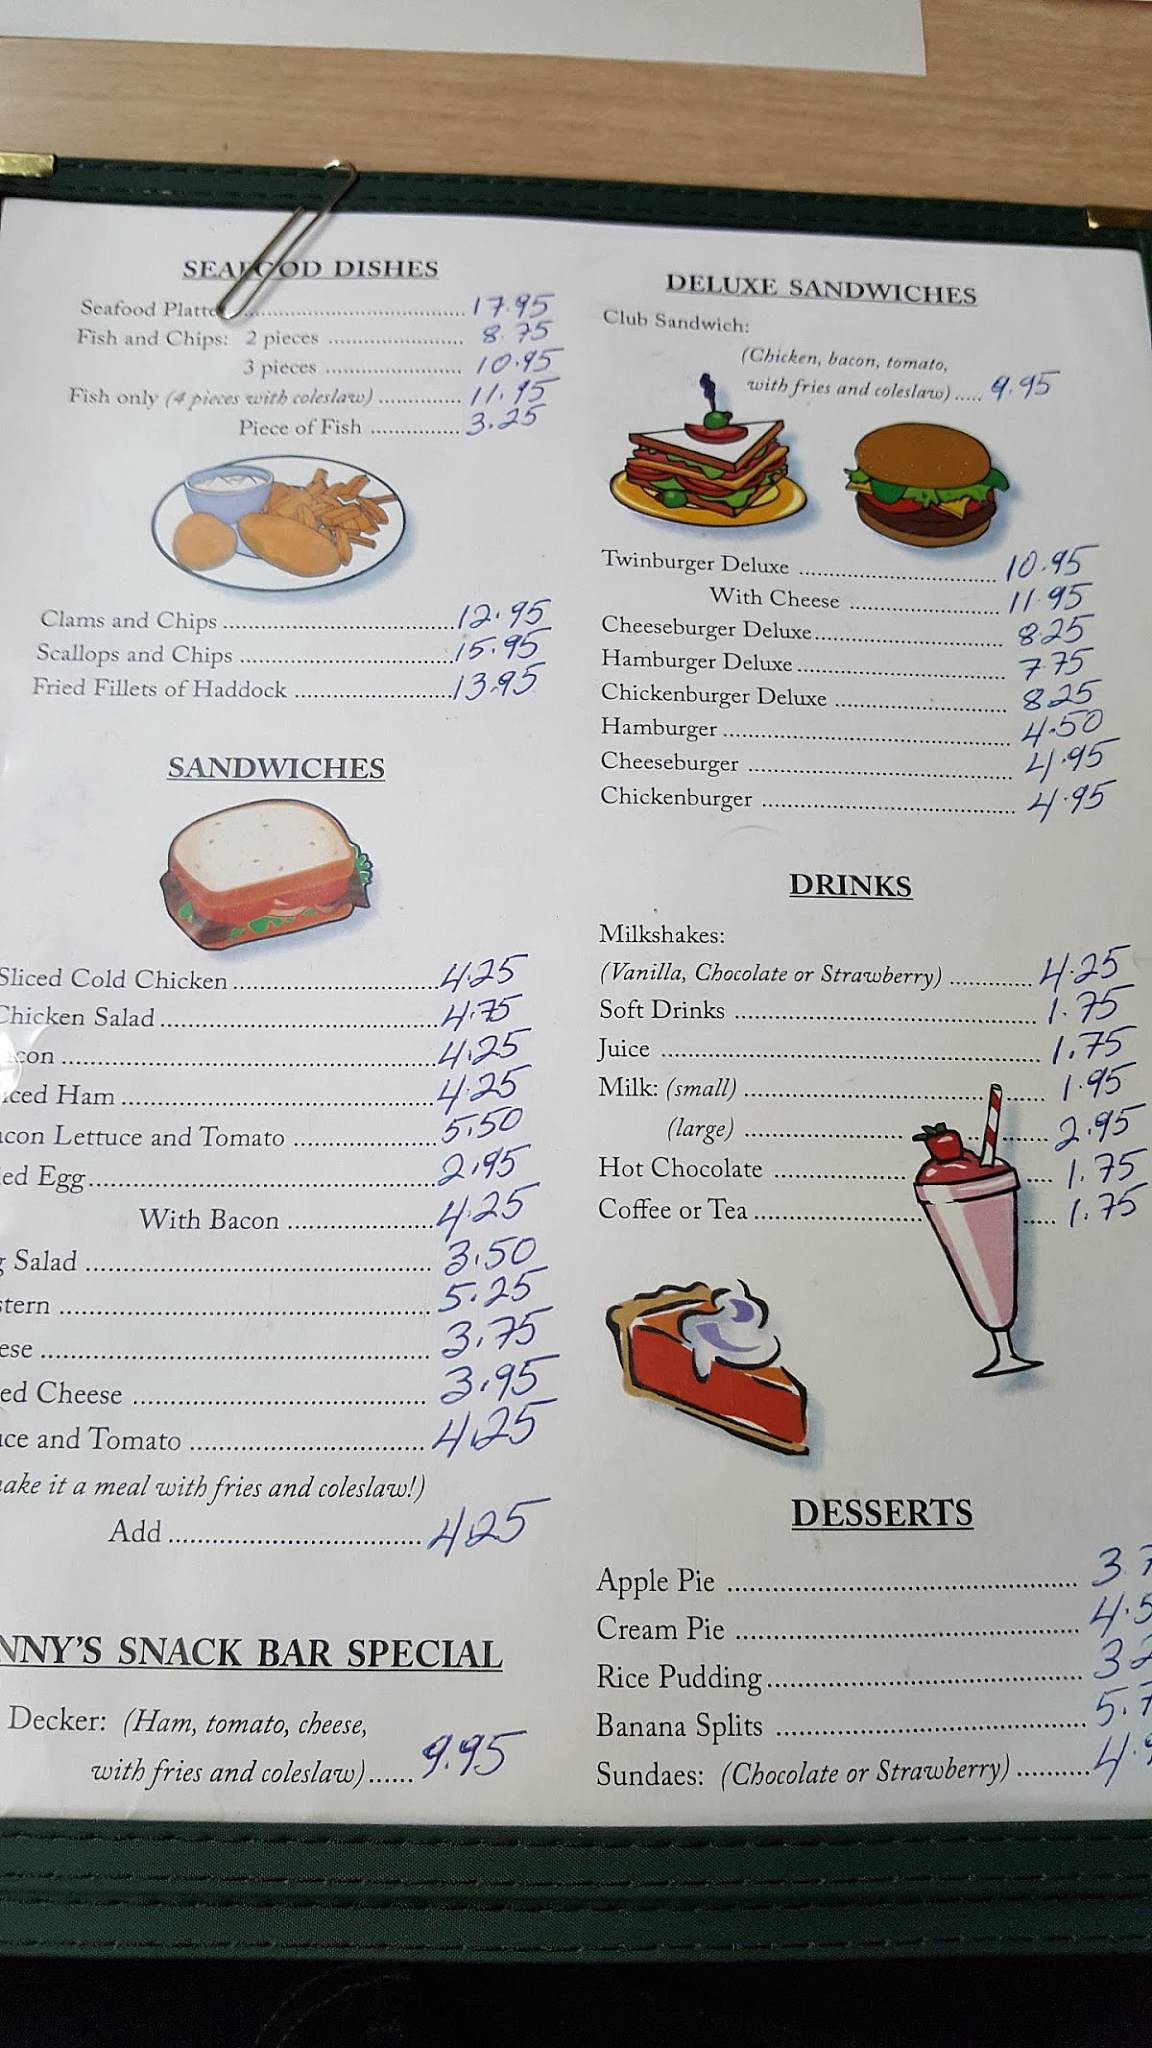 SEAFOOD DISHES
Seafood Platte ........ 17.95
Fish and Chips: 2 pieces ........ 8.75
3 pieces ........ 10.95
Fish only (4 pieces with coleslaw) ........ 11.95
Piece of Fish ........ 3.25
Clams and Chips ........ 12.95
Scallops and Chips ........ 15.95
Fried Fillets of Haddock ........ 13.95
SANDWICHES
Sliced Cold Chicken ........ 4.25
Chicken Salad ........ 4.75
con ........ 4.25
iced Ham ........ 4.25
acon Lettuce and Tomato ........ 5.50
ed Egg ........ 2.95
With Bacon ........ 4.25
g Salad ........ 3.50
stern ........ 5.25
ese ........ 3.75
ed Cheese ........ 3.95
uce and Tomato ........ 4.25
ake it a meal with fries and coleslaw!)
Add ........ 4.25
NNY'S SNACK BAR SPECIAL
Decker: (Ham, tomato, cheese,
with fries and coleslaw) ...... 9.95
DELUXE SANDWICHES
Club Sandwich:
(Chicken, bacon, tomato,
with fries and coleslaw) ..... 9.95
Twinburger Deluxe ........ 10.95
With Cheese ........ 11.95
Cheeseburger Deluxe ........ 8.25
Hamburger Deluxe ........ 7.75
Chickenburger Deluxe ........ 8.25
Hamburger ........ 4.50
Cheeseburger ........ 4.95
Chickenburger ........ 4.95
DRINKS
Milkshakes:
(Vanilla, Chocolate or Strawberry) ........ 4.25
Soft Drinks ........ 1.75
Juice ........ 1.75
Milk: (small) ........ 1.95
(large) ........ 2.95
Hot Chocolate ........ 1.75
Coffee or Tea ........ 1.75
DESSERTS
Apple Pie ........ 3.7
Cream Pie ........ 4.5
Rice Pudding ........ 3.2
Banana Splits ........ 5.7
Sundaes: (Chocolate or Strawberry) ........ 4.9